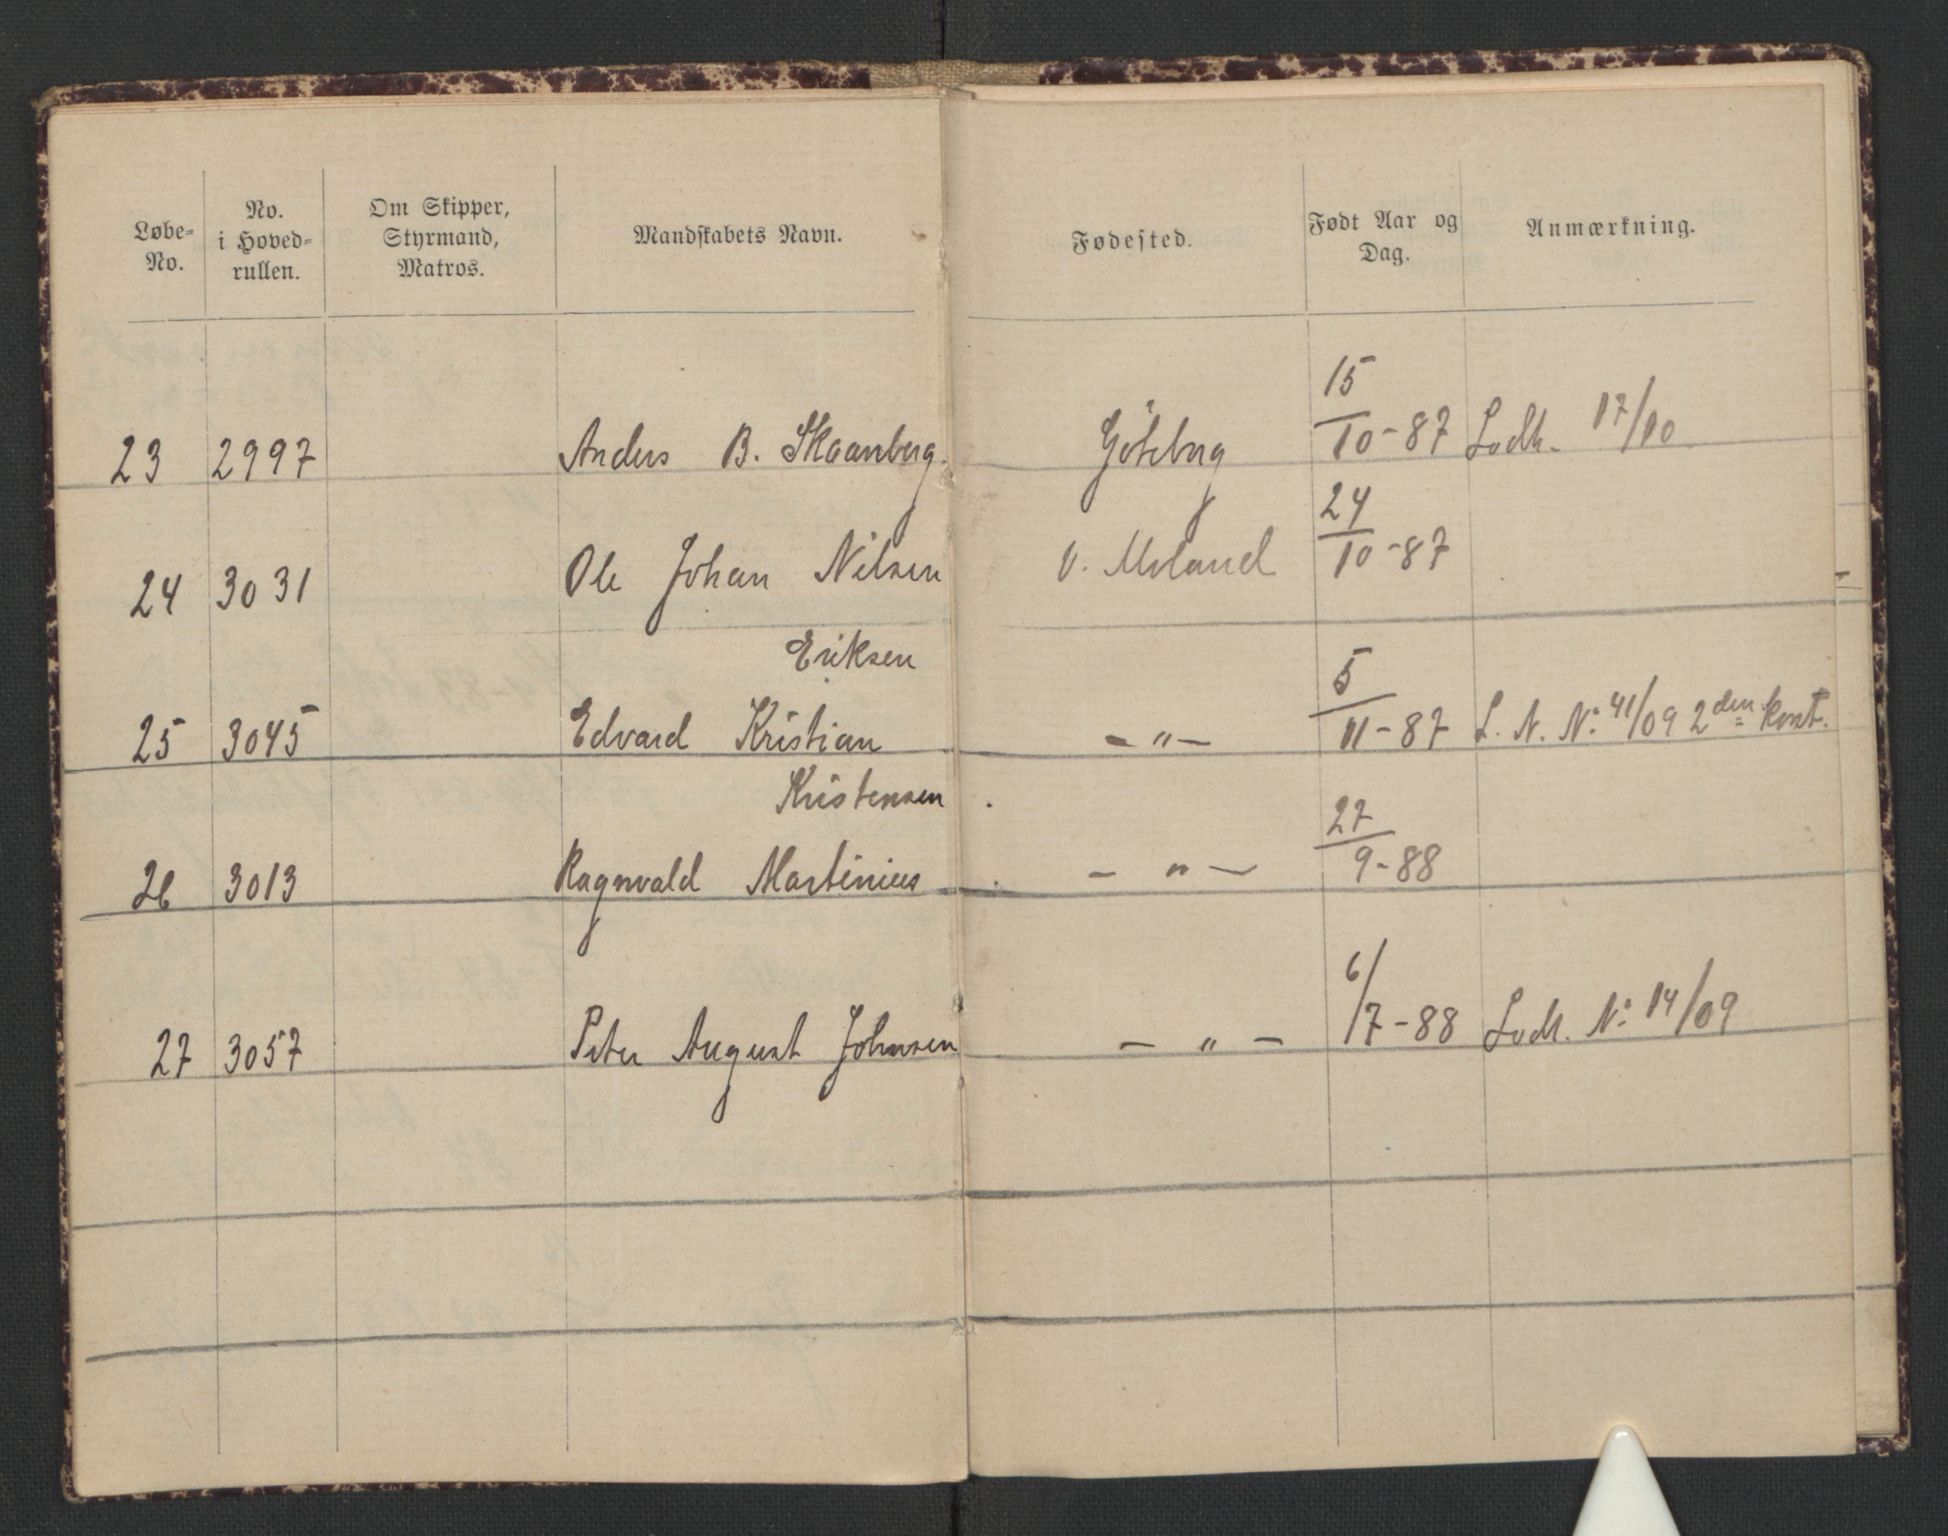 Løbe-No.	No. i Hoved-rullen.	Om Skipper, Styrmand, Matros.	Mandskabets Navn.	Fødested.	Født Aar og Dag.	Anmærkning.
23	2997	Anders B. Skaanberg.	Göteborg	15/10-87	Lodh. 17/10
24	3031	Ole Johan Nilsen	V. Moland	24/10-87
Eriksen
25	3045	Edvard Kristian	-„-	5/11-87	L. N. No. 41/09 2den Kont.
Kristensen
26	3013	Ragnvald Martinius	-„-	27/9-88
27	3057	Peter August Johnsen	-„-	6/7-88	Lodh. No. 14/09